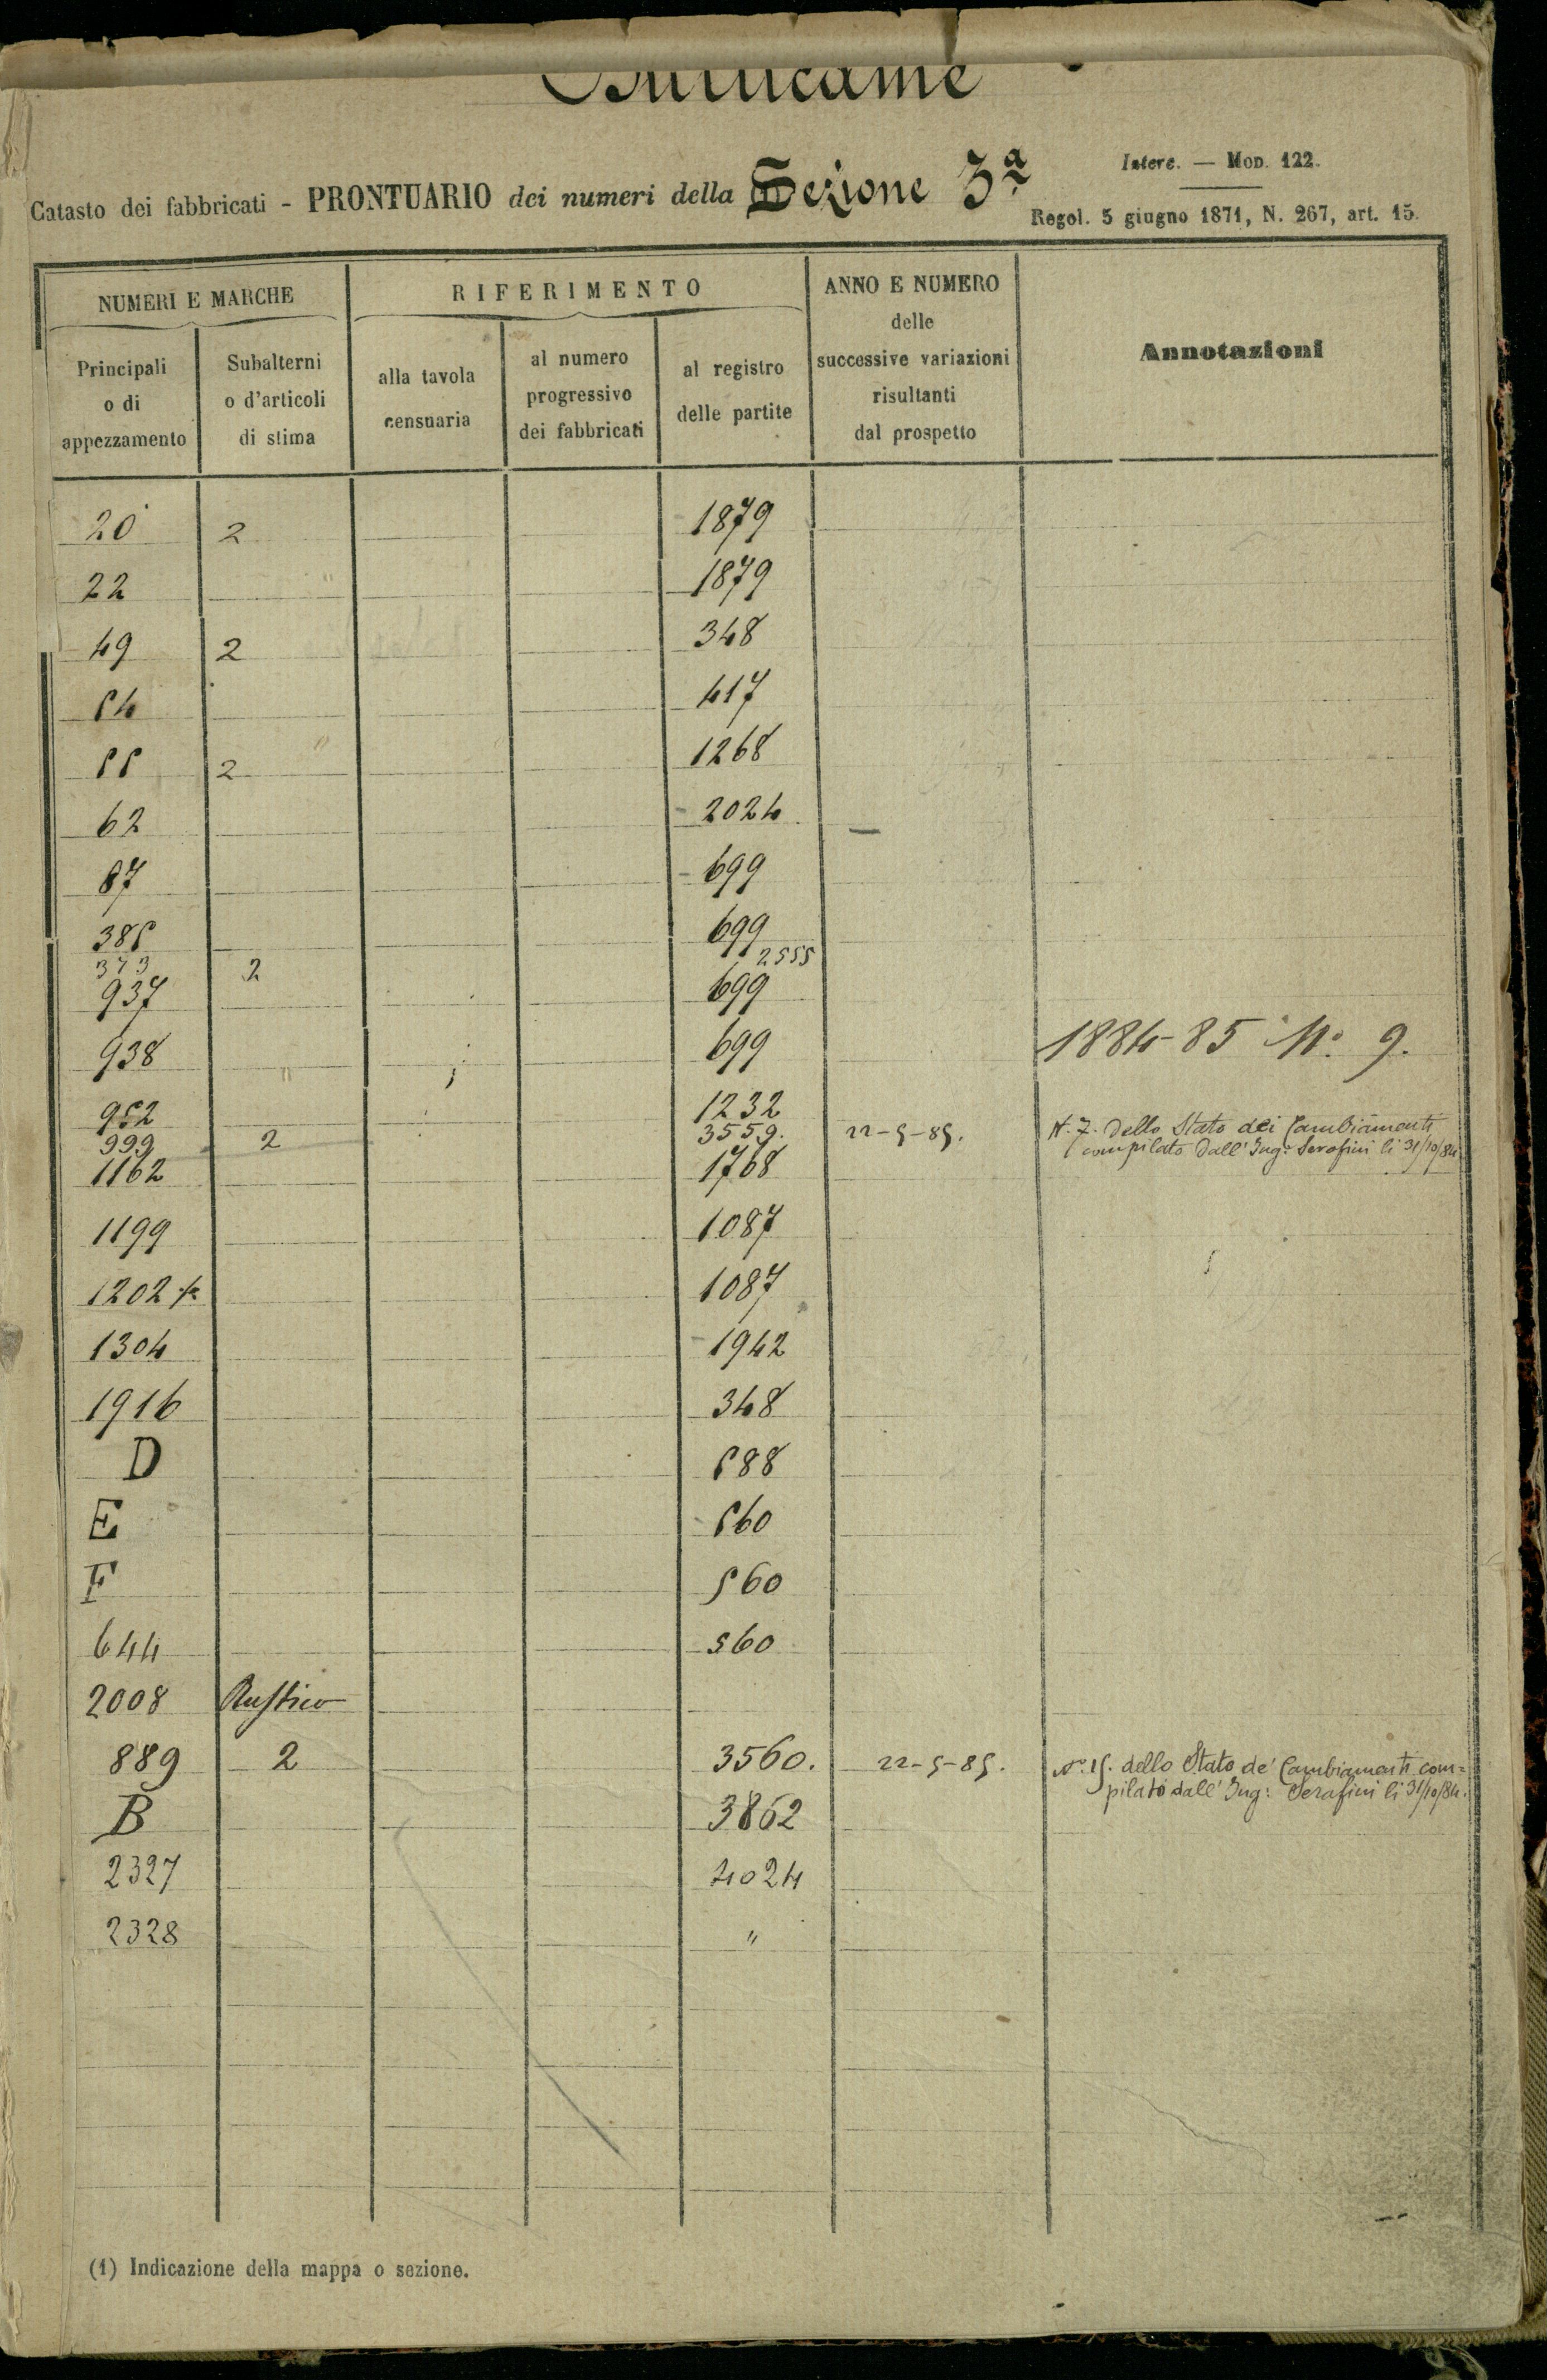 Bullicame
Catasto dei fabbricati - PRONTUARIO dei numeri della (1) Sezione 3ª
Interc. — Mod. 122.
Regol. 5 giugno 1871, N. 267, art. 15.
NUMERI E MARCHE
RIFERIMENTO
ANNO E NUMERO
delle
successive variazioni
risultanti
dal prospetto
Annotazioni
Principali
o di
appezzamento
Subalterni
o d'articoli
di stima
alla tavola
censuaria
al numero
progressivo
dei fabbricati
al registro
delle partite
20 2 1879
22 1879
49 2 348
54 417
55 2 1268
62 2024 —
87 699
385 699
373 2 2555
937 699
938 699 1884-85 N.º 9.
952 1232
999 2 3559. 22-5-85. N. 7. dello Stato dei Cambiamenti
compilato dall' Ing: Serafini li 31/10/84
1162 1768
1199 1087
1202 1087
1304 1942
1916 348
D 588
E 560
F 560
644 560
2008 Rustico
889 2 3560. 22-5-85. Nº. 15. dello Stato de' Cambiamenti com=
pilato dall' Ing: Serafini li 31/10/84.
B 3862
2327 4024
2328 "
(1) Indicazione della mappa o sezione.